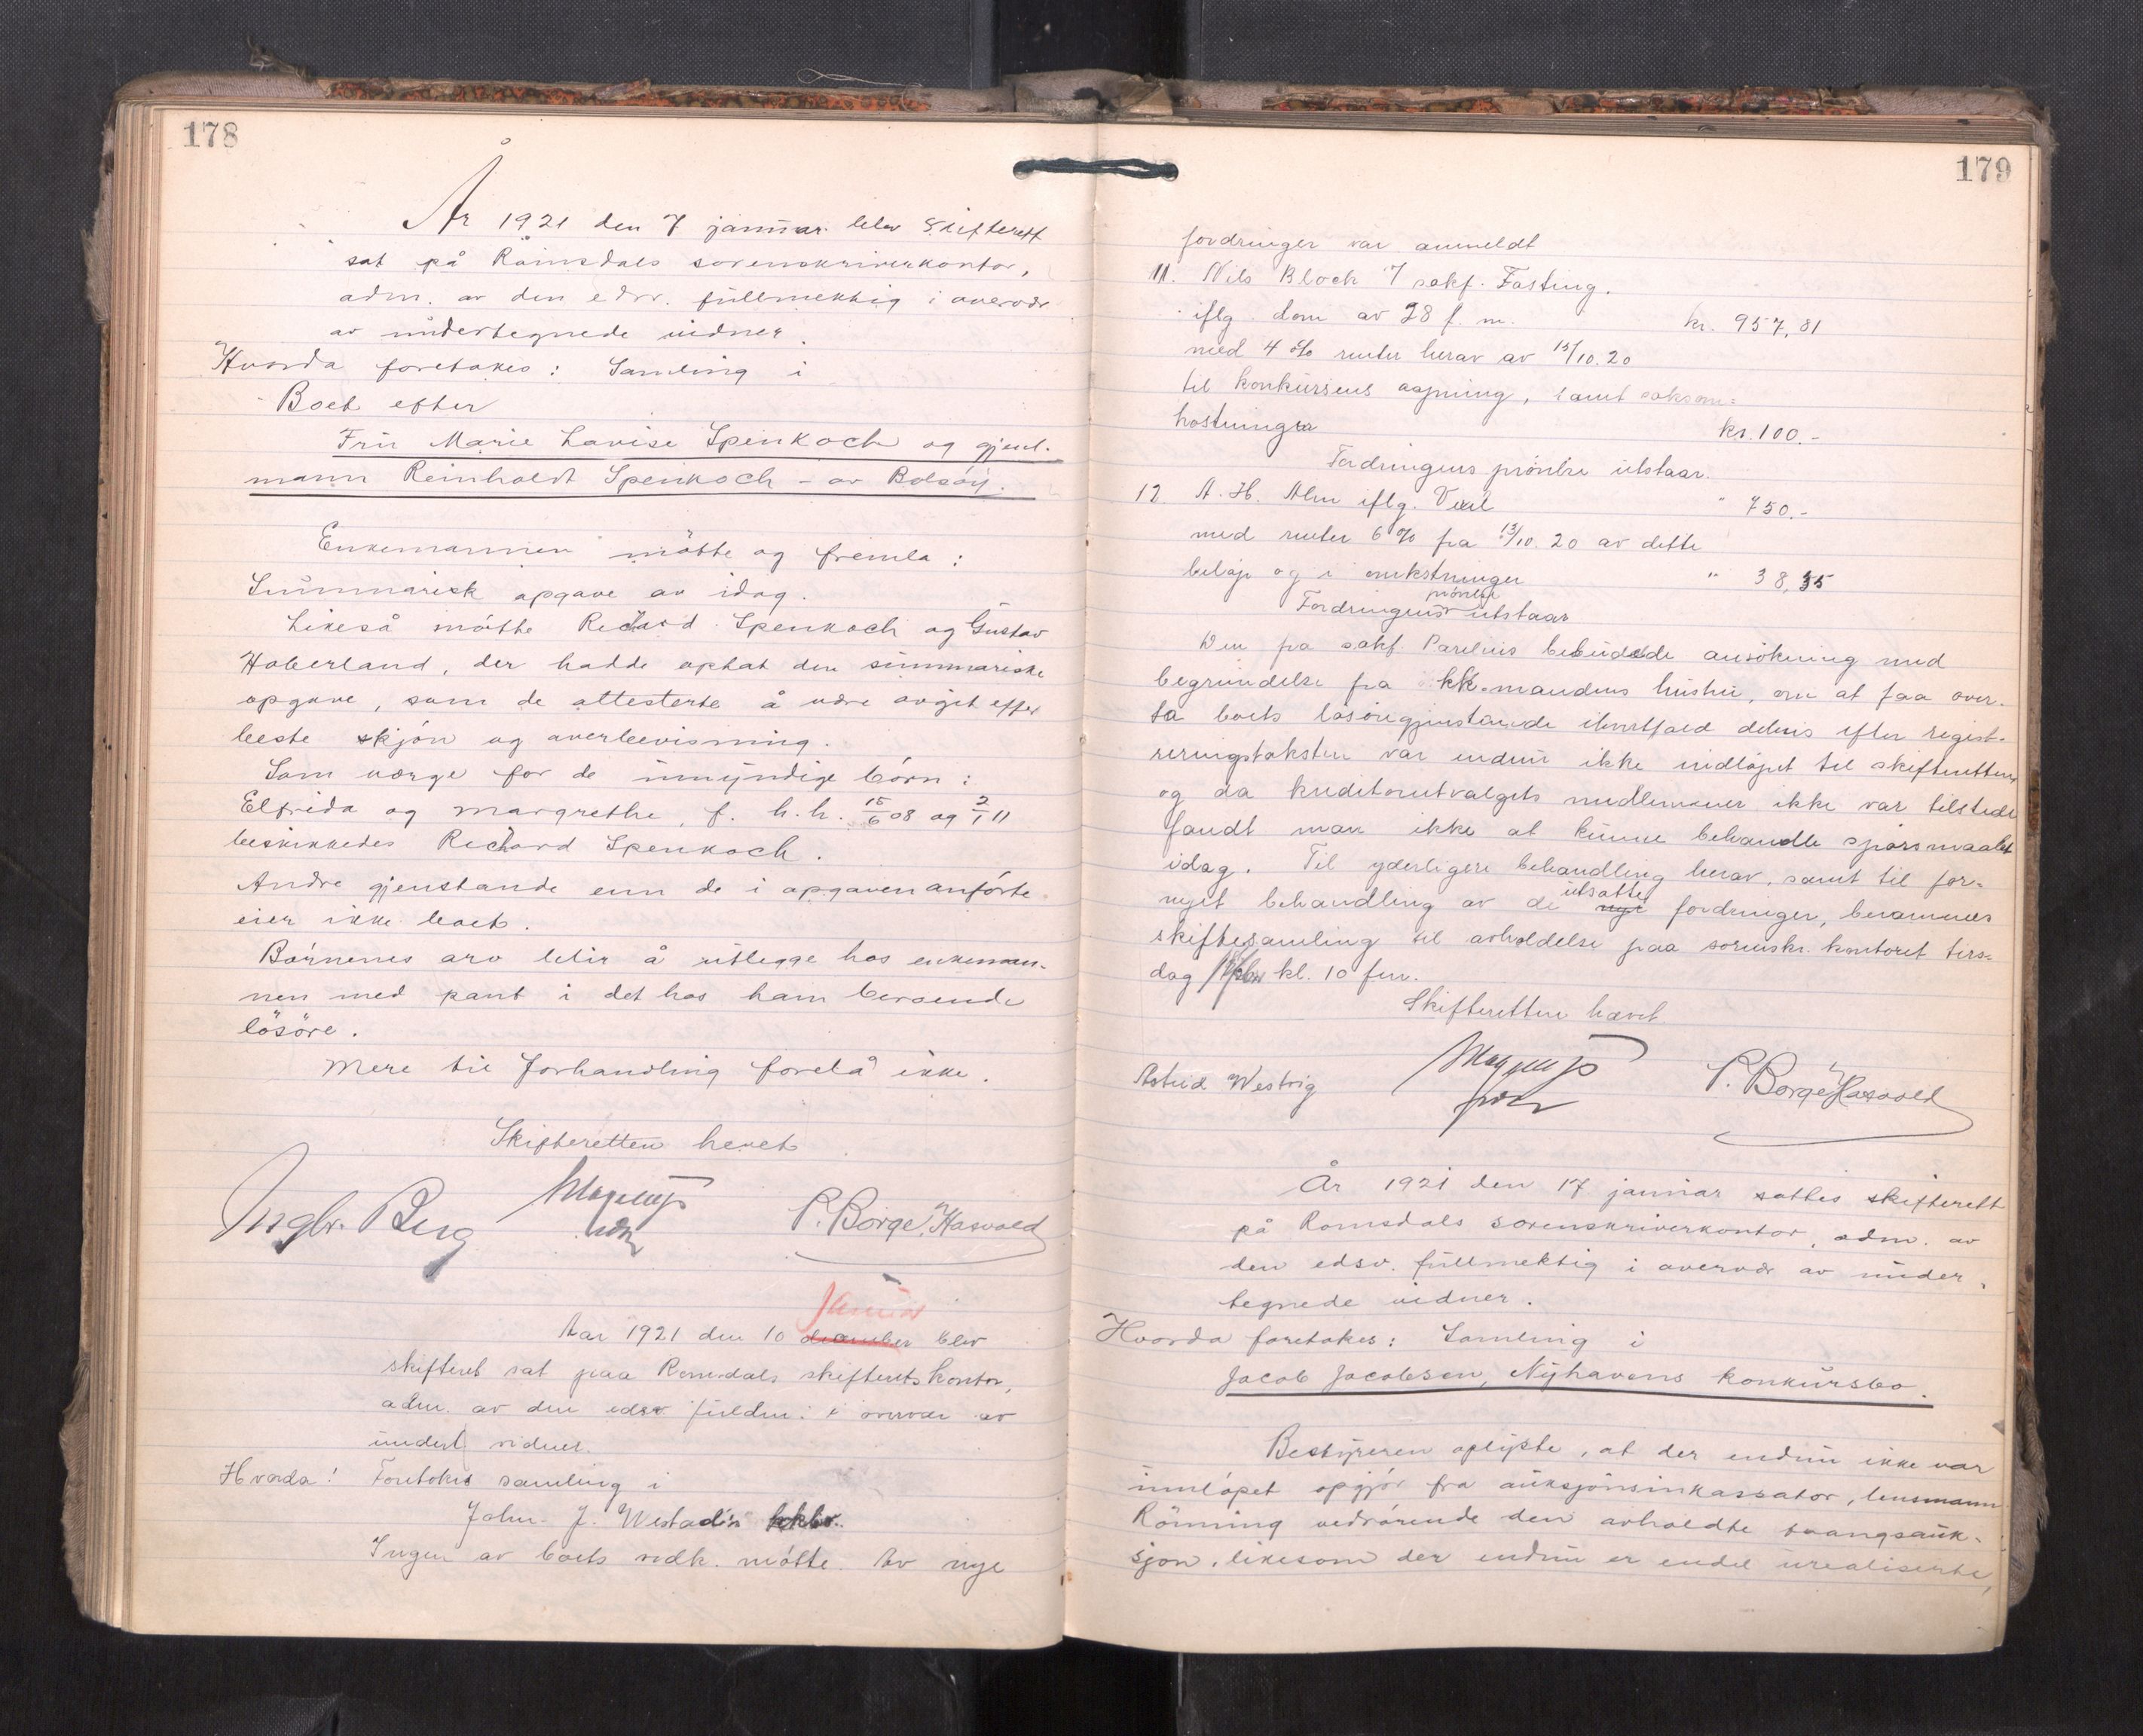 178
År 1921 den 7 januar blev skifterett
sat på Romsdals sorenskriverkontor,
adm. av den edsv. fullmektig i overvær
av undertegnede vidner.
Hvorda foretokes: Samling i
Boet efter
Fru Marie Lovise Spenkoch og gjenl.
mann Reinholdt Spenkoch - av Bolsöy.
Enkemannen mötte og fremla:
Summarisk opgave av idag.
Likeså mötte Richard Spenkoch og Gustav
Haberland, der hadde optat den summariske
opgave, som de attesterte å være avgit efter
beste skjön og overbevisning.
Som verge for de umyndige börn:
Elfrida og Margrethe, f. h.h. 15/6 08 og 2/1 11
beskikkedes Richard Spenkoch.
Andre gjenstande enn de i opgaven anförte
eier ikke boet.
Börnenes arv blir å utlegge hos enkeman-
nen med pant i det hos ham beroende
lösöre.
Mere til forhandling forelå ikke.
Skifteretten hevet
Ingbr. Berg P. Borge Hasvold
januar
Aar 1921 den 10 december blev
skifteret sat paa Romsdals skifteretskontor,
adm. av den edsv. fuldm. i overvær av
undert vidner.
Hvorda! Foretokes samling i
John J. Westad's kkbo.
Ingen av boets vedk. mötte. Av nye
179
fordringer var anmeldt
11. Nils Bloch v/ sakf. Fasting.
iflg. dom av 28 f. m. kr. 957,81
med 4 % renter herav av 15/10.20
til konkursens aapning, samt saksom=
kostninger kr. 100.-
Fordringens prövelse utstaar.
12. A. H. Alm iflg. Vexel " 750.-
med renter 6 % fra 13/10.20 av dette
belöp og i omkstninger " 38,35
prövelse
Fordringens utstaar
Den fra sakf. Parelius bebudede ansökning med
begrundelse fra kk.mandens hustru, om at faa over-
ta boets lösöregjenstande ihvertfald delvis efter regist-
reringstaksten var endnu ikke indlöpet til skifteretten,
og da kreditorutvalgets medlemmer ikke var tilstede
fandt man ikke at kunne behandle spörsmaalet
idag. Til yderligere behandling herav, samt til for-
utsatte
nyet behandling av de nye fordringer, berammes
skiftesamling til avholdelse paa sorenskr. kontoret tirs-
dag kl. 10 fm.
Skifteretten hævet
Astrid Westvig P. Borge Hasvold
År 1921 den 17 januar sattes skifterett
på Romsdals sorenskriverkontor, adm. av
den edsv. fullmektig i overvær av under-
tegnede vidner.
Hvorda foretokes: Samling i
Jacob Jacobsen, Nyhavens konkursbo.
Bestyreren oplyste, at der endnu ikke var
innlöpet opgjör fra auksjonsinkassator, lensmann
Rönning vedrörende den avholdte tvangsauk-
sjon, likesom der endnu er endel urealiserte,